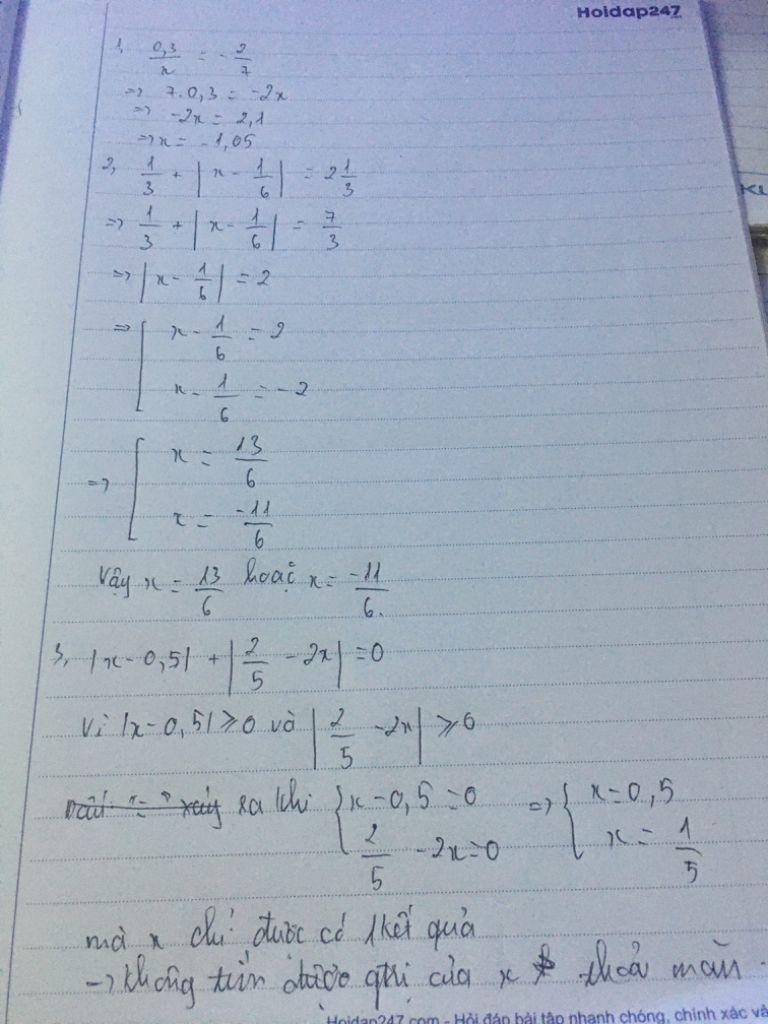 Hoidap247
1, 0,3/x = -2/7
=> 7.0,3 = -2x
=> -2x = 2,1
=> x = -1,05
2, 1/3 + |x - 1/6| = 2 1/3
=> 1/3 + |x - 1/6| = 7/3
=> |x - 1/6| = 2
=> [ x - 1/6 = 2
x - 1/6 = -2
=> [ x = 13/6
x = -11/6
Vậy x = 13/6 hoặc x = -11/6.
3, |x - 0,5| + |2/5 - 2x| = 0
Vì |x - 0,5| ≥ 0 và |2/5 - 2x| ≥ 0
Dấu "=" xảy ra khi { x - 0,5 = 0 => { x = 0,5
2/5 - 2x = 0 x = 1/5
mà x chỉ được có 1 kết quả
-> không tìm được giá trị của x thoả mãn.
Hoidap247.com - Hỏi đáp bài tập nhanh chóng, chính xác và